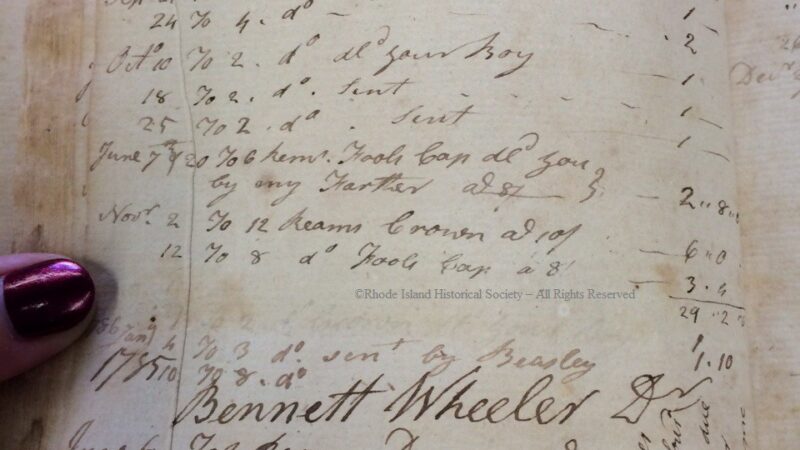 24 To 4. do 1
Octo 10 To 2. do dld your Boy 2
18 To 2. do. Sent 1
25 To 2. do. Sent 1
June 7th & 20 To 6 Rems. Fools Cap dld you 1
by my Farther ad 8/ 2,,8,,
Novr. 2 To 12 Reams Crown ad 10/ 6,,0
12 To 8 do Fools Cap a 8/ 3.4
©Rhode Island Historical Society – All Rights Reserved
29 ,,2
4 To 3 do. sent by Beasley 1.10
1785 10 To 8. do
Bennett Wheeler Dr
June